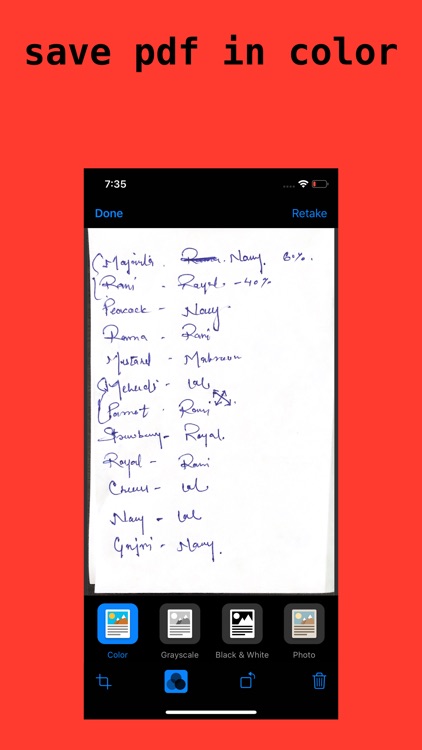 save pdf in color
7:35
Done Retake
Majenta . Rama . Navy. 60%.
Rani - Royal. - 40%
Peacock - Navy.
Rama - Rani
Mustard - Mahroon
Mehendi - Lal
Parrot - Rani.
Strawberry - Royal.
Royal - Rani
Cheeku - Lal
Navy - Lal
Gajri - Navy.
Color Grayscale Black & White Photo